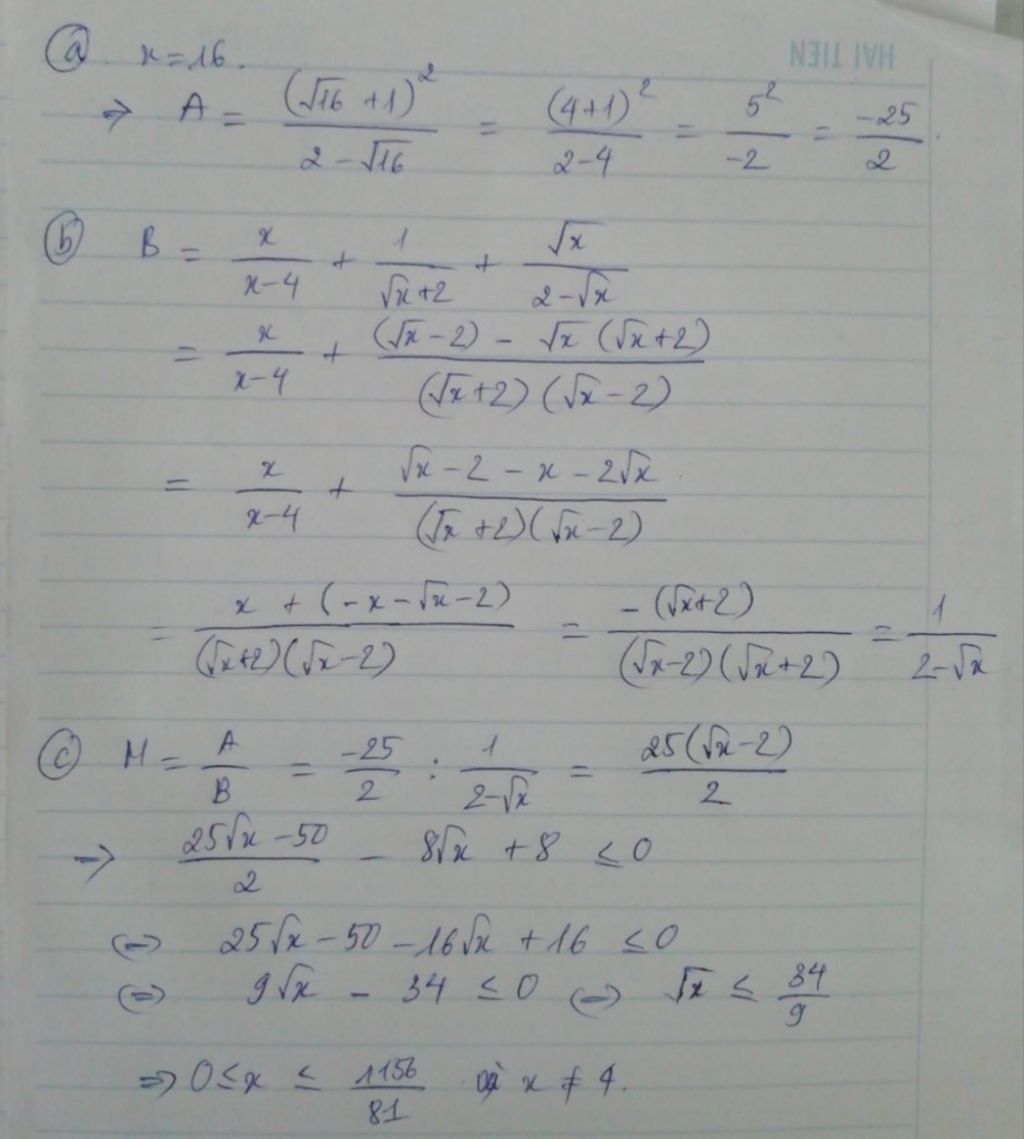 HẢI TIẾN
ⓐ. x = 16.
⇒ A = (√16 + 1)² / (2 - √16) = (4+1)² / (2-4) = 5² / -2 = -25 / 2.
ⓑ B = x / (x-4) + 1 / (√x+2) + √x / (2-√x)
= x / (x-4) + ((√x-2) - √x (√x+2)) / ((√x+2) (√x-2))
= x / (x-4) + (√x - 2 - x - 2√x) / ((√x+2)(√x-2))
= (x + (-x-√x-2)) / ((√x+2)(√x-2)) = -(√x+2) / ((√x-2)(√x+2)) = 1 / (2-√x)
ⓒ M = A / B = -25 / 2 : 1 / (2-√x) = 25(√x-2) / 2
→ (25√x - 50) / 2 - 8√x + 8 ≤ 0
⇔ 25√x - 50 - 16√x + 16 ≤ 0
⇔ 9√x - 34 ≤ 0 ⇔ √x ≤ 34 / 9
⇒ 0 ≤ x ≤ 1156 / 81 x ≠ 4.